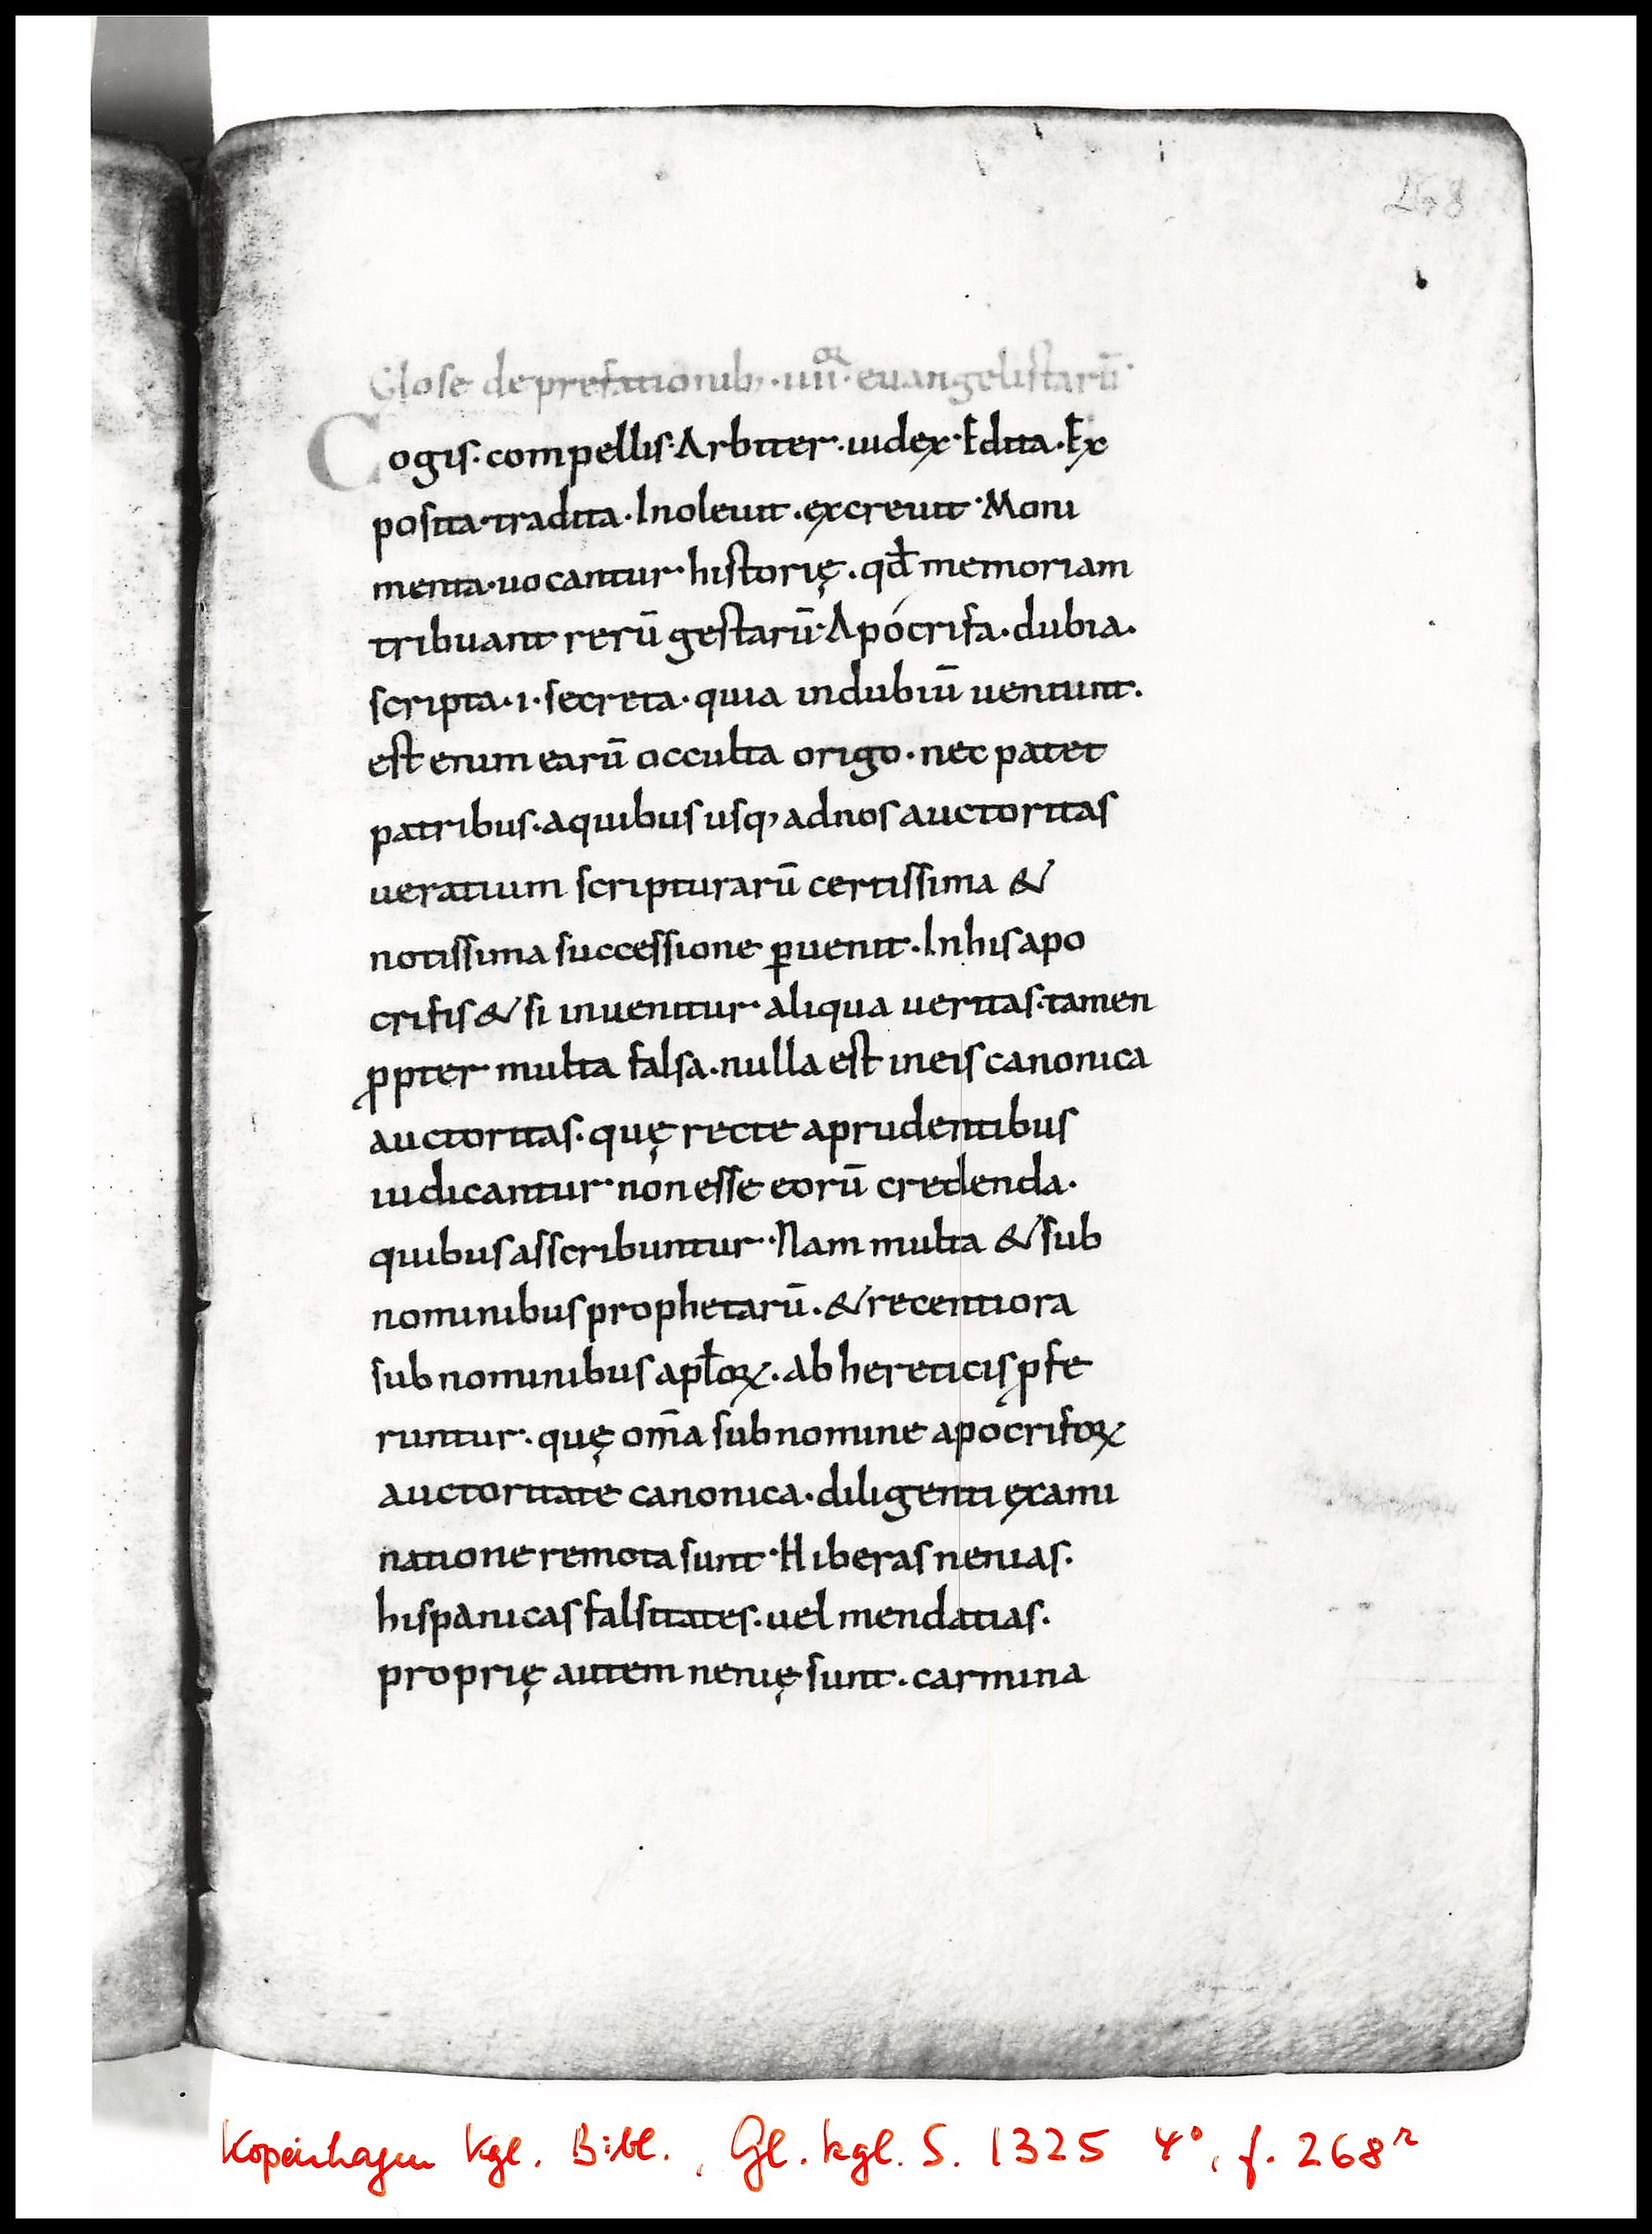 268
Glose de prefationib; ·iiii^or· euangelistarū
Cogis· compellis· Arbiter· iudex· Edita· Ex
posita· tradita· Inoleuit· excreuit· Moni
menta· uocantur· historię· qđ memoriam
tribuant rerū gestarū· Apócrifa· dubia·
scripta· i· secreta· quia indubiū ueniunt·
est enim earū occulta origo· nec patet
patribus· aquibus usq; adnos auctoritas
ueratium scripturarū certissima &
notissima successione ꝑuenit· Inhis apo
crifis & si inuenitur aliqua ueritas· tamen
ꝓpter multa falsa· nulla est ineis canonica
auctoritas· quę recte aprudentibus
iudicantur· non esse eorū credenda·
quibus asscribuntur· Nam multa & sub
nominibus prophetarū· & recentiora
sub nominibus apłoꝝ· ab hereticis ꝓfe
runtur· quę om̄a sub nomine apocrifoꝝ
auctoritate canonica· diligenti exami
natione remota sunt· Hiberas nenias·
hispanicas falsitates· uel mendatias·
proprię autem nenię sunt· carmina
Kopenhagen Kgl. Bibl., Gl. kgl. S. 1325 4°, f. 268r